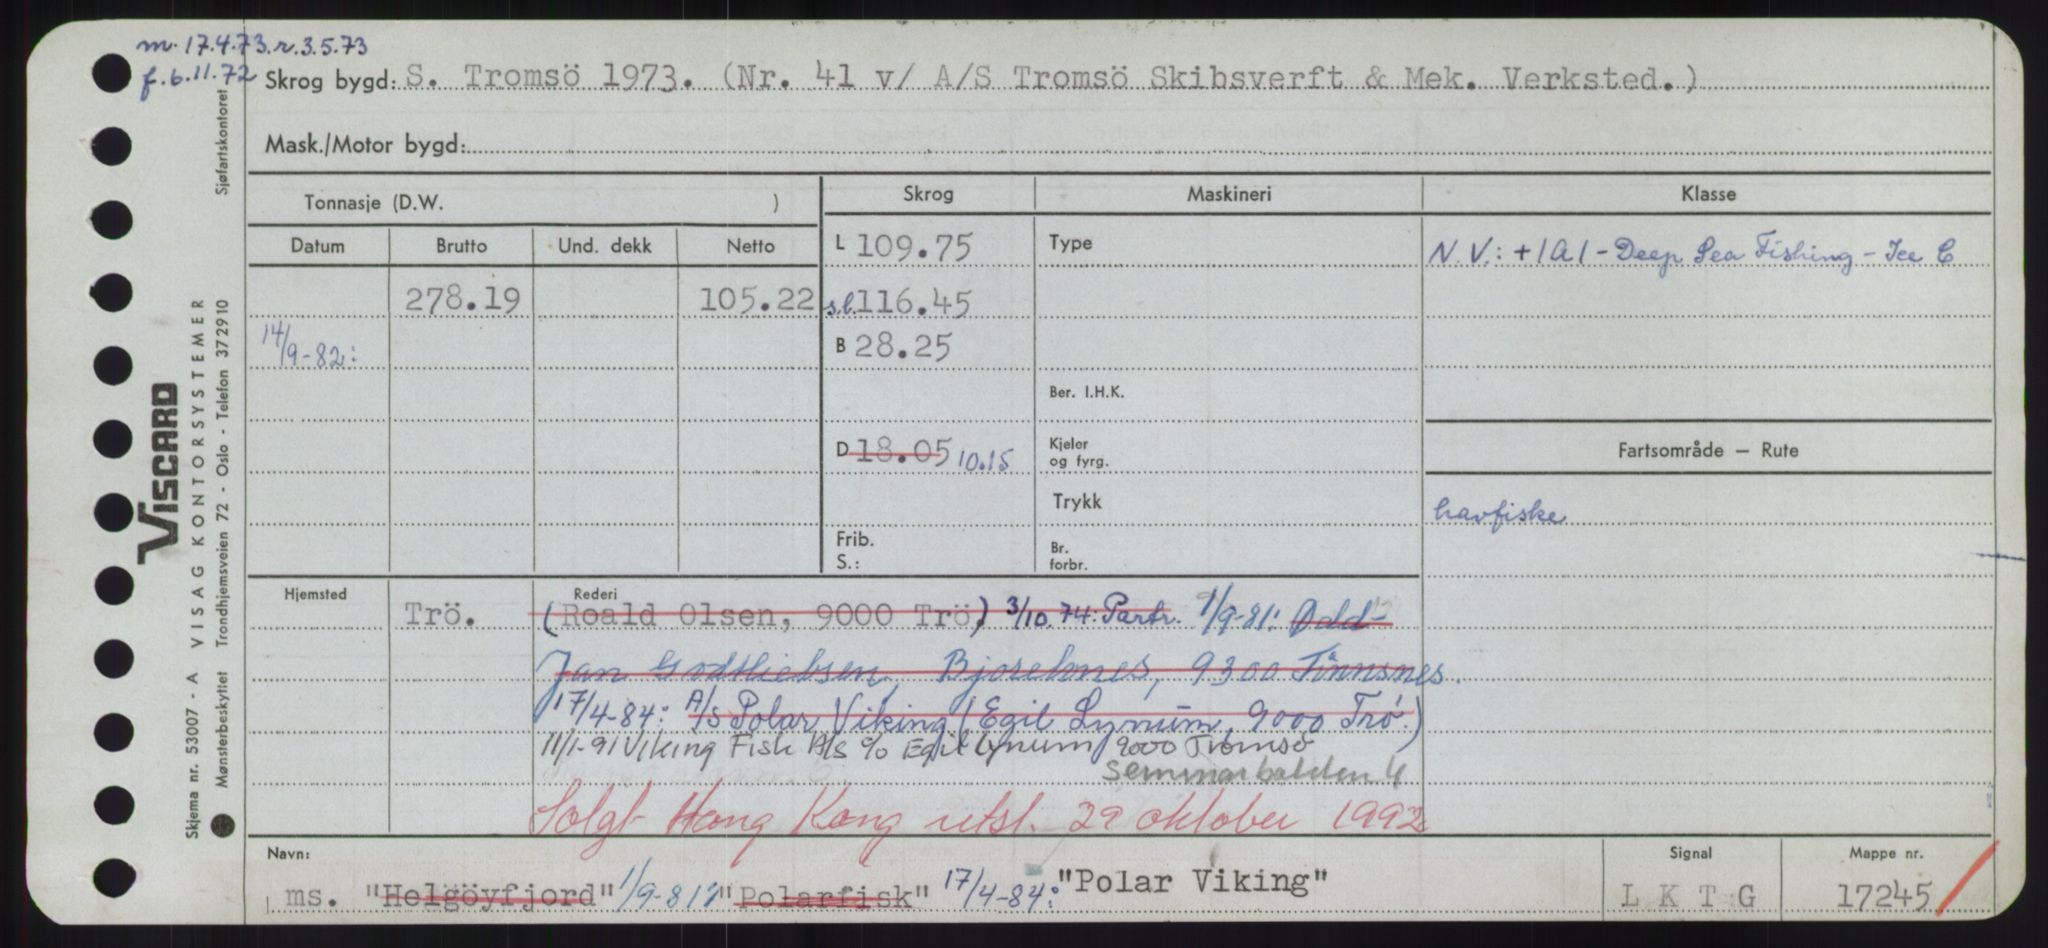 m. 17.4.73. r. 3.5.73
f. 6.11.72
Skrog bygd: S. Tromsö 1973. (Nr. 41 v/ A/S Tromsö Skibsverft & Mek. Verksted.)
Mask./Motor bygd:
Tonnasje (D.W. )
Skrog
Maskineri
Klasse
Datum Brutto Und. dekk Netto
L 109.75
Type
N.V.: +1A1 - Deep Sea Fishing - Ice C
278.19 105.22
s.l. 116.45
14/9-82:
B 28.25
Ber. I.H.K.
D 18.05 10.15
Kjeler
og fyrg.
Fartsområde — Rute
Trykk
havfiske
Frib.
S.:
Br.
forbr.
Hjemsted
Rederi
Trö. (Roald Olsen, 9000 Trö.) 3/10.74: Partr. 1/9-81:
Jan Godtliebsen, 9300 Finnsnes.
17/4-84: A/S Polar Viking (Egil Lynum, 9000 Trö.)
11/1-91 Viking Fisk A/S c/o Egil Lynum 9000 Tromsö
4
Solgt Hong Kong utsl. 29 oktober 1992
Navn:
ms. "Helgöyfjord" 1/9-81: "Polarfisk" 17/4-84: "Polar Viking"
Signal
L K T G
Mappe nr.
17245
Sjøfartskontoret
VISCARD
VISAG KONTORSYSTEMER
Skjema nr. 53007 - A
Mønsterbeskyttet Trondhjemsveien 72 - Oslo - Telefon 372910